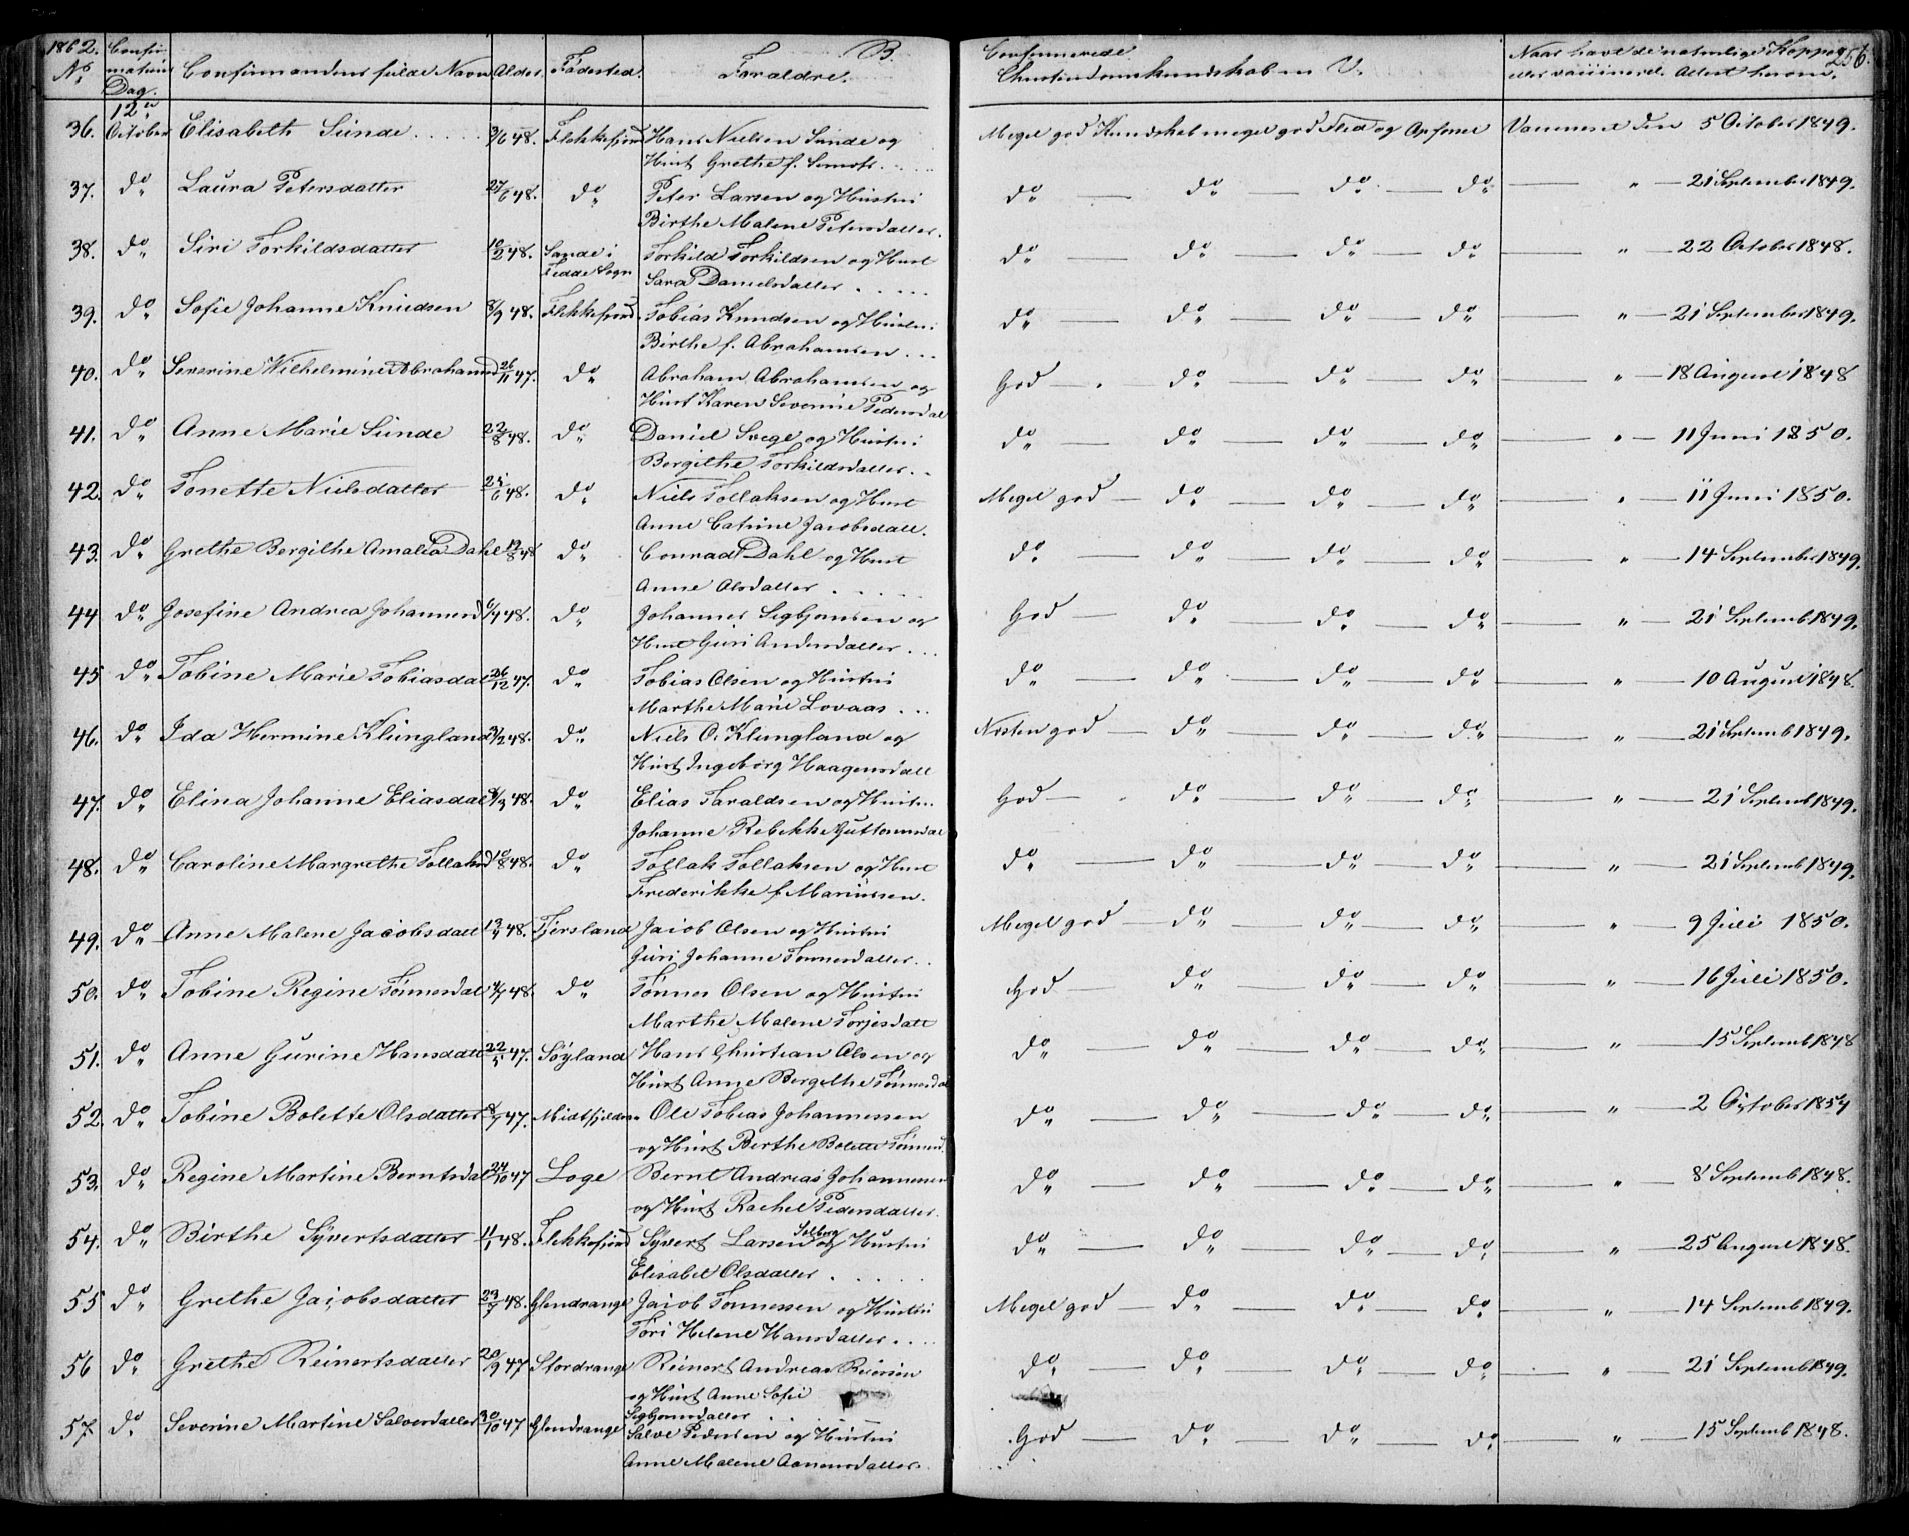 1862. Confirmations Dag. Confirmandens fulde Navn Alder. Fødested. Forældre. B. Confirmerede Christendomskundskab m. V. Naar havt de naturlige Kopper eller vaccineret. Attest herom. 256.
No
36. 12te October Elisabeth Sunde 3/6 48. Flekkefjord Hans Nielsen Sunde og Meget god Kundskab meget god Flid og Opførsel Vaccineret den 5 October 1849.
Hust Grethe f.
37. do Laura Petersdatter 27/6 48. do Peter Larsen og Hustru do do do do " 21 September 1849.
Birthe Malene Petersdatter.
38. do Siri Torkildsdatter 10/2 48. Sande i Torkild Torkildsen og Hust do do do do " 22 October 1848.
Fedde Sogn Sara Danielsdatter
39. do Sofie Johanne Knudsen 8/9 48. Flekkefjord Tobias Knudsen og Hustru do do do do " 21 September 1849.
Birthe f. Abrahamsen
40. do Severine Wilhelmine Abrahamsd 26/11 47. do Abraham Abrahamsen og God do do do " 18 August 1848
Hust Karen Severine Pedersdat
41. do Anne Marie Sunde 22/8 48. do Daniel Svege og Hustru do do do do " 11 Juni 1850.
Bergithe Torkildsdatter.
42. do Tonette Nielsdatter 6 48. do Niels Tollaksen og Hust Meget god do do do " 11 Juni 1850.
Anne Catrine Jacobsdatt.
43. do Grethe Bergithe Amalia Dahl 8 48 do Conrad Dahl og Hust do do do do " 14 September 1849.
Anne Olsdatter
44 do Josefine Andrea Johannesd 48. do Johannes Sigbjørnsen og God do do do " 21 Septemb 1849.
Hust Guri Andersdatter
45 do Tobine Marie Tobiasdat 26/12 47. do Tobias Olsen og Hustru do do do do " 10 August 1848.
Marthe Marie Lovaas
46. do Ida Hermine Klungland 2 48. do Niels O. Klungland og Næsten god do do do " 21 Septemb 1849.
Hust Ingeborg Haagensdatt
47. do Elina Johanne Eliasdat 3 48. do Elias Taraldsen og Hustru God do do do " 21 Septemb 1849.
Johanne Rebekke Guttormsdat
48. do Caroline Margrethe Tollaksd 10/8 48. do Tollak Tollaksen og Hust do do do do " 21 Septemb 1849.
Frederikke f. Mariussen.
49. do Anne Malene Jacobsdatt 13 48. Fjersland Jacob Olsen og Hustru Meget god do do do " 9 Juli 1850.
Guri Johanne Tønnesdatter
50. do Tobine Regine Tønnesdat 48. do Tønnes Olsen og Hustru God do do do " 16 Juli 1850.
Marthe Malene Torjesdatt
51. do Anne Gurine Hansdatt 22 47. Søyland Hans Christian Olsen og do do do do " 15 Septemb 1848
Hust Anne Bergithe Tønnesdat
52. do Tobine Bolette Olsdatter 47. Midtfjelden Ole Tobias Johannessen do do do do " 2 October 1854
og Hust Berthe Bolette Tønnesd.
53. do Regine Martine Berntsdat 24/10 47 Loge Bernt Andreas Johannesen do do do do " 8 Septemb 1848.
og Hust Rachel Pedersdatter.
54. do Birthe Syvertsdatter 11/1 48. Flekkefjord Syvert Larsen Solberg og Hustru do do do do " 25 August 1848.
Elisabet Olsdatter
55 do Grethe Jacobsdatter 23 48. Glendrange Jacob Tønnessen og Hustru Meget god do do do " 14 Septemb 1849.
Tori Helene Hansdatter
56 do Grethe Reinertsdatter 20/9 47 Stordrange Reinert Andreas Reiersen do do do do " 21 September 1849.
og Hust Anne Sofie
Sigbjørnsdatter
57. do. Severine Martine Salvesdatter 20/10 47 Glendrange Salve Pedersen og Hustru God do do do " 15 Septemb 1848.
Anne Malene Aanensdatter.